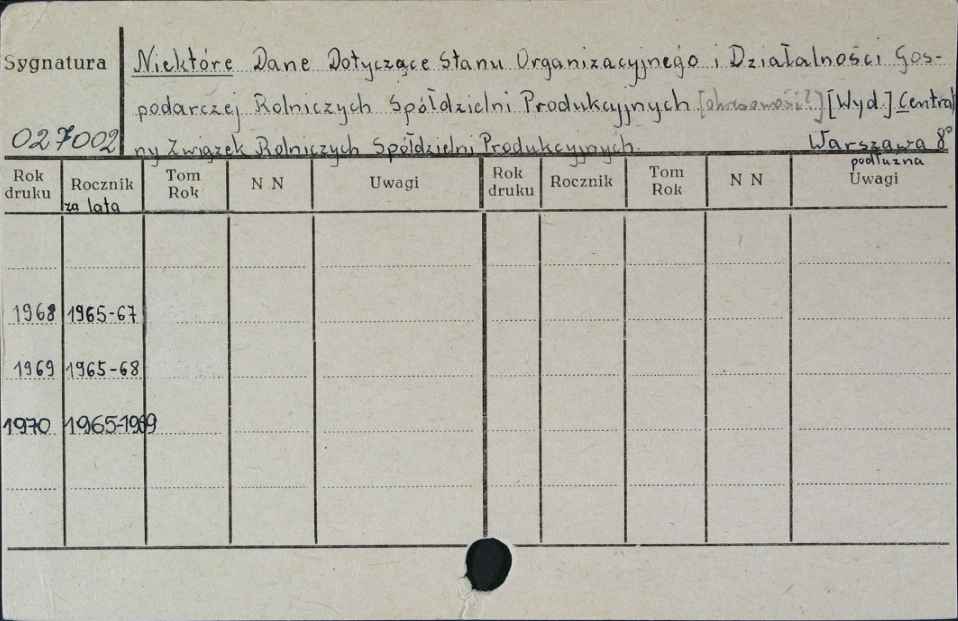 Sygnatura
027002
Niektóre Dane Dotyczące Stanu Organizacyjnego i Działalności Gos-
podarczej Rolniczych Spółdzielni Produkcyjnych [Wyd.] Central
ny Związek Rolniczych Spółdzielni Produkcyjnych. Warszawa 8°
podłużna
Rok druku Rocznik Tom Rok N N Uwagi Rok druku Rocznik Tom Rok N N Uwagi
za lata
1968 1965-67
1969 1965-68
1970 1965-1969